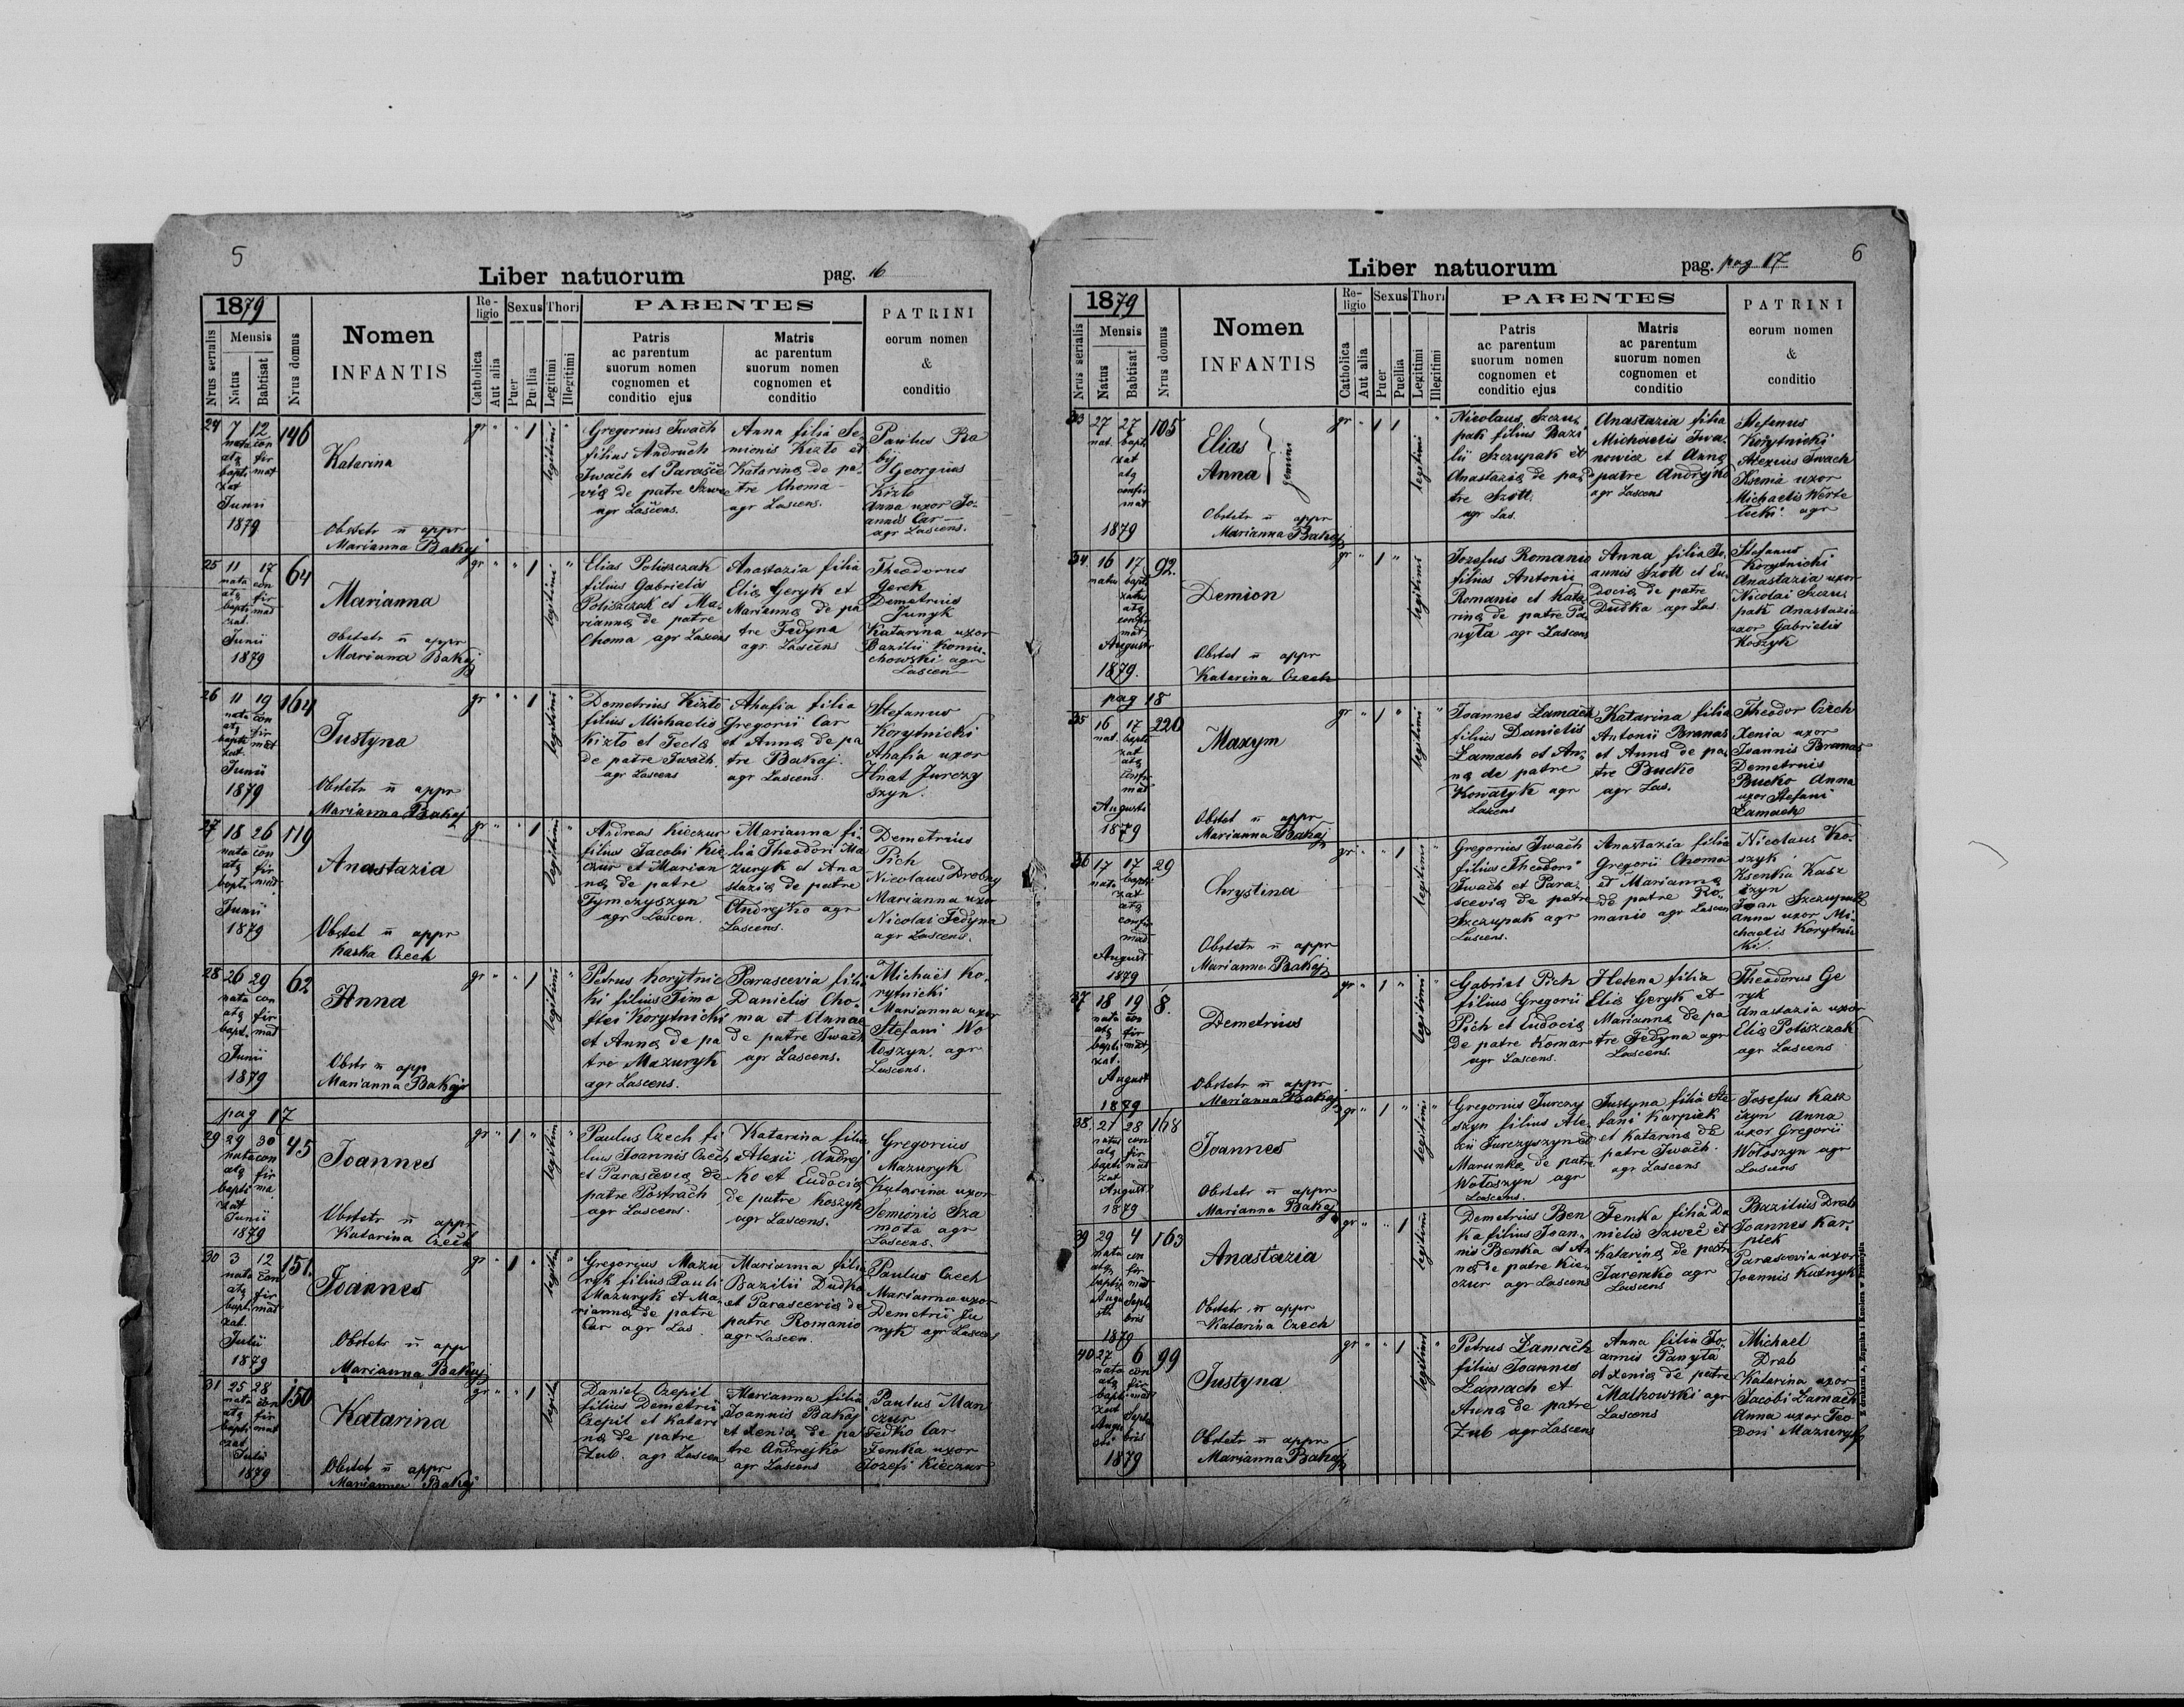 5
Liber natuorum
pag. 16
1879
Nrus serialis
Mensis
Natus
Babtisat
Nrus domus
Nomen
INFANTIS
Re-
ligio
Catholica
Aut alia
Sexus
Puer
Puellia
Thori
Legitimi
Illegitimi
PARENTES
Patris
ac parentum
suorum nomen
cognomen et
conditio ejus
Matris
ac parentum
suorum nomen
cognomen et
conditio
PATRINI
eorum nomen
&
conditio
24 7 12 146
nata con
atq fir
bapti mat
zat
Junii
1879
Katarina
Obstetr n appr
Marianna Bakaj
gr " " 1 legitimi "
Gregorius Iwach
filius Andruch
Iwach et Parasce
via de patre Szwec
agr Lascens.
Anna filia Se-
mionis Kizto et
Katarina de pa-
tre Choma
agr Lascens.
Paulus Ba
bij
Georgius
Kizto
Anna uxor Jo-
annis Car
agr Lascens.
25 11 17 64
nata con
atq fir
bapti mat
zat.
Junii
1879
Marianna
Obstetr n appr
Marianna Bakaj
gr " " 1 legitimi "
Elias Poliszczak
filius Gabrielis
Poliszczak et Ma-
rianna de patre
Choma agr Lascens
Anastazia filia
Elia Geryk et
Marianna de pa
tre Fedyna
agr Lascens
Theodorus
Gerek
Demetrius
Junyk
Katarina uxor
Bazilii Komu-
chowski agr
Lascen
26 11 19 164
nata con
atq fir
bapti mat
zat
Junii
1879
Justyna
Obstetr n appr
Marianna Bakaj
gr " " 1 legitimi "
Demetrius Kizto
filius Michaelis
Kizto et Tecla
de patre Iwach.
agr Lascens
Ahafia filia
Gregorii Car
et Anna de pa
tre Bakaj.
agr Lascens.
Stefanus
Korytnicki
Ahafia uxor
Hnat Jurczy
szyn.
27 18 26 119
nata con
atq fir
bapti mat
Junii
1879
Anastazia
Obstet n appr
Kaska Czech
gr " " 1 legitimi "
Andreas Kieczur
filius Jacobi Kie
czur et Marian
na de patre
Tymczyszyn
agr Lascen.
Marianna fi-
lia Theodori Ma
zuryk et Ana
stazia de patre
Andrejko agr
Lascens.
Demetrius
Pich
Nicolaus Drobny
Marianna uxor
Nicolai Fedyna
agr Lascens.
28 26 29 62
nata con
atq fir
bapti mat
Junii
1879
Anna
Obstr n app
Marianna Bakaj
gr " " 1 legitimi "
Petrus Korytnic
ki filius Timo
ftei Korytnicki
et Anna de pa
tre Mazuryk
agr Lascens.
Parascevia filia
Danielis Cho-
ma et Annae
de patre Iwach
agr Lascens.
Michael Ko-
rytnicki
Marianna uxor
Stefani Wo
loszyn. agr
Lascens.
pag 17
29 29 30 45
nata con
atq fir
bapti ma
zat
Junii
1879
Joannes
Obstetr n appr
Katarina Czech
gr " 1 " legitim "
Paulus Czech fi
lius Joannis Czech
et Parascevia de
patre Postrach
agr Lascens.
Katarina filia
Alexii Andrej
ko et Eudocia
de patre Koszyk
agr Lascens.
Gregorius
Mazuryk
Katarina uxor
Semionis Sza
mota agr
Lascens.
30 3 12 151.
nata con
atq fir
bapti mat
zat.
Julii
1879
Joannes
Obstetr n app
Marianna Bakaj
gr " 1 " legitim "
Gregorius Mazu
ryk filius Pauli
Mazuryk et Ma-
rianna de patre
Car agr Las
Marianna filia
Bazilii Dudka
et Parascevia de
patre Romanio
agr Lascen.
Paulus Czech
Marianna uxor
Demetrii Ju
nyk agr Lascens
31 25 28 150
nata con
atq fir
bapti mat
zat
Julii
1879
Katarina
Obstet n appr
Marianna Bakaj
gr " " 1 legiti "
Daniel Czepil
filius Demetrii
Czepil et Katari
na de patre
Zub. agr Lascen
Marianna filia
Joannis Bakaj
et Xenia de pa
tre Andrejko
agr Lascens
Paulus Man
czur
Fedko Car
Femka uxor
Jozefi Kieczur
6
Liber natuorum
pag. pag 17
1879
Nrus serialis
Mensis
Natus
Babtisat
Nrus domus
Nomen
INFANTIS
Re-
ligio
Catholica
Aut alia
Sexus
Puer
Puellia
Thori
Legitimi
Illegitimi
PARENTES
Patris
ac parentum
suorum nomen
cognomen et
conditio ejus
Matris
ac parentum
suorum nomen
cognomen et
conditio
PATRINI
eorum nomen
&
conditio
33 27 27 105
nat. bapti
zat
atq
confir
mat
1879
Elias
Anna
Obstetr n appr
Marianna Bakaj
gr " 1 1 legitimi "
Nicolaus Szczu
pak filius Bazi
lii Szczupak et
Anastazia de pa
tre Szott.
agr Las.
Anastazia filia
Michaelis Iwa-
nowicz et Anna
de patre Andryko
agr Lascens
Stefanus
Korytnicki
Alexius Iwach
Ksenia uxor
Michaelis Werte
lecki. agr
34 16 17 92.
natu bapti
zatus
atq
confir
mat
August
1879.
Demion
Obstet n appr
Katarina Czech
gr " 1 " legitimi
Jozefus Romanio
filius Antonii
Romanio et Kata
rina de patre Pa
nyta agr Lascens
Anna filia Jo-
annis Szott et Eu-
docia de patre
Dudka agr Las.
Stefanus
Korytnicki
Anastazia uxor
Nicolai Szczu
pak Anastazia
uxor Gabrielis
Koszyk
pag 18
35 16 17 220
nat. bapti
zat
atq
confir
mat
Augusti
1879
Maxym
Obstet n appr
Marianna Bakaj
gr " 1 " legitimi "
Joannes Lamach
filius Danielis
Lamach et An-
na de patre
Kowalyk agr
Lascens
Katarina filia
Antonii Branas
et Anna de pa
tre Bucko
agr Las.
Theodor Czech
Xenia uxor
Joannis Branas
Demetrius
Bucko Anna
uxor Stefani
Lamach
36 17 17 29
nata bapti
zat
atq
confir
mat
August
1879
Chrystina
Obstetr n appr
Marianna Bakaj
gr " " 1 legitimi "
Gregorius Iwach
filius Theodori
Iwach et Para-
scevia de patre
Szczupak agr
Lascens.
Anastazia filia
Gregorii Choma
et Marianna
de patre Ro-
manio agr Lascen
Nicolaus Ko-
szyk
Ksenka Kasz
czyn
Iwan Szczupak
Anna uxor Mi-
chaelis Korytnic
ki.
37 18 19 8.
nata con
atq fir
bapti mat
zat.
August
1879
Demetrius
Obstetr n appr
Marianna Bakaj
gr " 1 " legitimi "
Gabriel Pich
filius Gregorii
Pich et Eudocia
de patre Komar
agr Lascens.
Helena filia
Elia Geryk et
Marianna de pa
tre Fedyna agr
Lascens.
Theodorus Ge
ryk
Anastazia uxor
Elia Poliszczak
agr Lascens
38. 21 28 168
natus con
atq fir
bapti mat
zat
August
1879
Joannes
Obstetr n appr
Marianna Bakaj
gr " 1 " legitimi "
Gregorius Jurczy
szyn filius Ale-
xii Jurczyszyn et
Marunka de patre
Woloszyn agr
Lascens.
Justyna filia Ste
fani Karpiek
et Katarina de
patre Iwach.
agr Lascens
Josefus Kasz
czyn Anna
uxor Gregorii
Woloszyn agr
Lascens
39 29 4 163
nata con
atq fir
bapti mat
Augu Septe
sti bris
1879
Anastazia
Obstetr n appr
Katarina Czech
gr " " 1 legitimi
Demetrius Ben
ka filius Joan-
nis Benka et An
na de patre Kie-
czur agr Lascens
Femka filia Da
nielis Szwec et
Katarina de patre
Jaremko agr
Lascens
Bazilius Drab
Joannes Kar
piek
Parascevia uxor
Joannis Kudnyk
40 27 6 99
nata con
atq fir
bapti mat
zat Septe
Augu bris
sti
1879
Justyna
Obstetr n appr
Marianna Bakaj
gr " " 1 legitimi "
Petrus Lamach
filius Joannis
Lamach et
Anna de patre
Zub agr Lascens
Anna filia Jo-
annis Panyta
et Xenia de patre
Malhowski agr
Lascens
Michael
Drab
Katarina uxor
Jacobi Lamach
Anna uxor Teo
dori Mazuryk